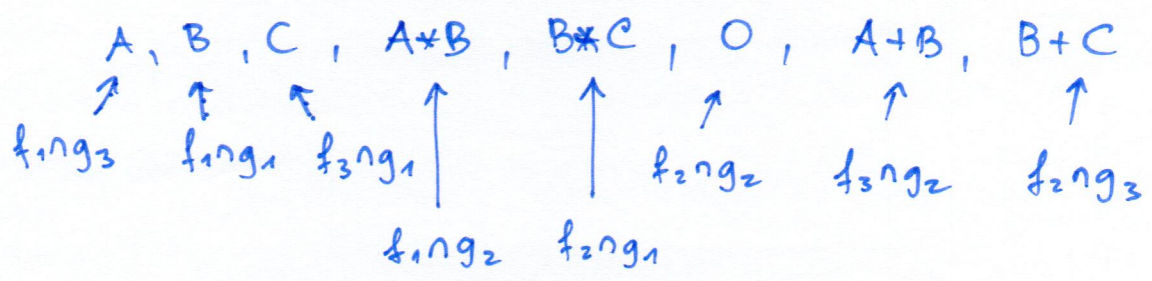 A, B, C, A*B, B*C, O, A+B, B+C
f₁∩g₃ f₁∩g₁ f₃∩g₁ f₂∩g₂ f₃∩g₂ f₂∩g₃
f₁∩g₂ f₂∩g₁